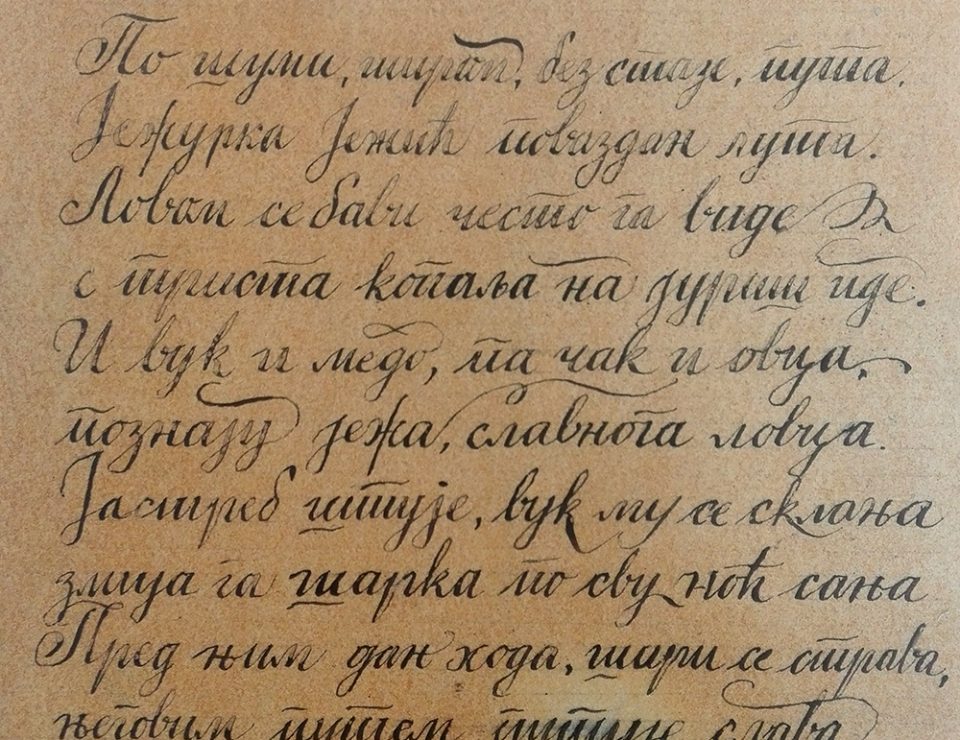 По шуми, широм, без стазе, пута,
Јежурка Јежић поваздан лута.
Ловом се бави често га виде
с триста копаља на јуриш иде.
И вук и медо, па чак и овца,
познају јежа, славнога ловца.
Јастреб штује, вук му се склања
змија га шарка по сву ноћ сања
Пред њим дан хода, шири се страва,
његовим путем путује слава